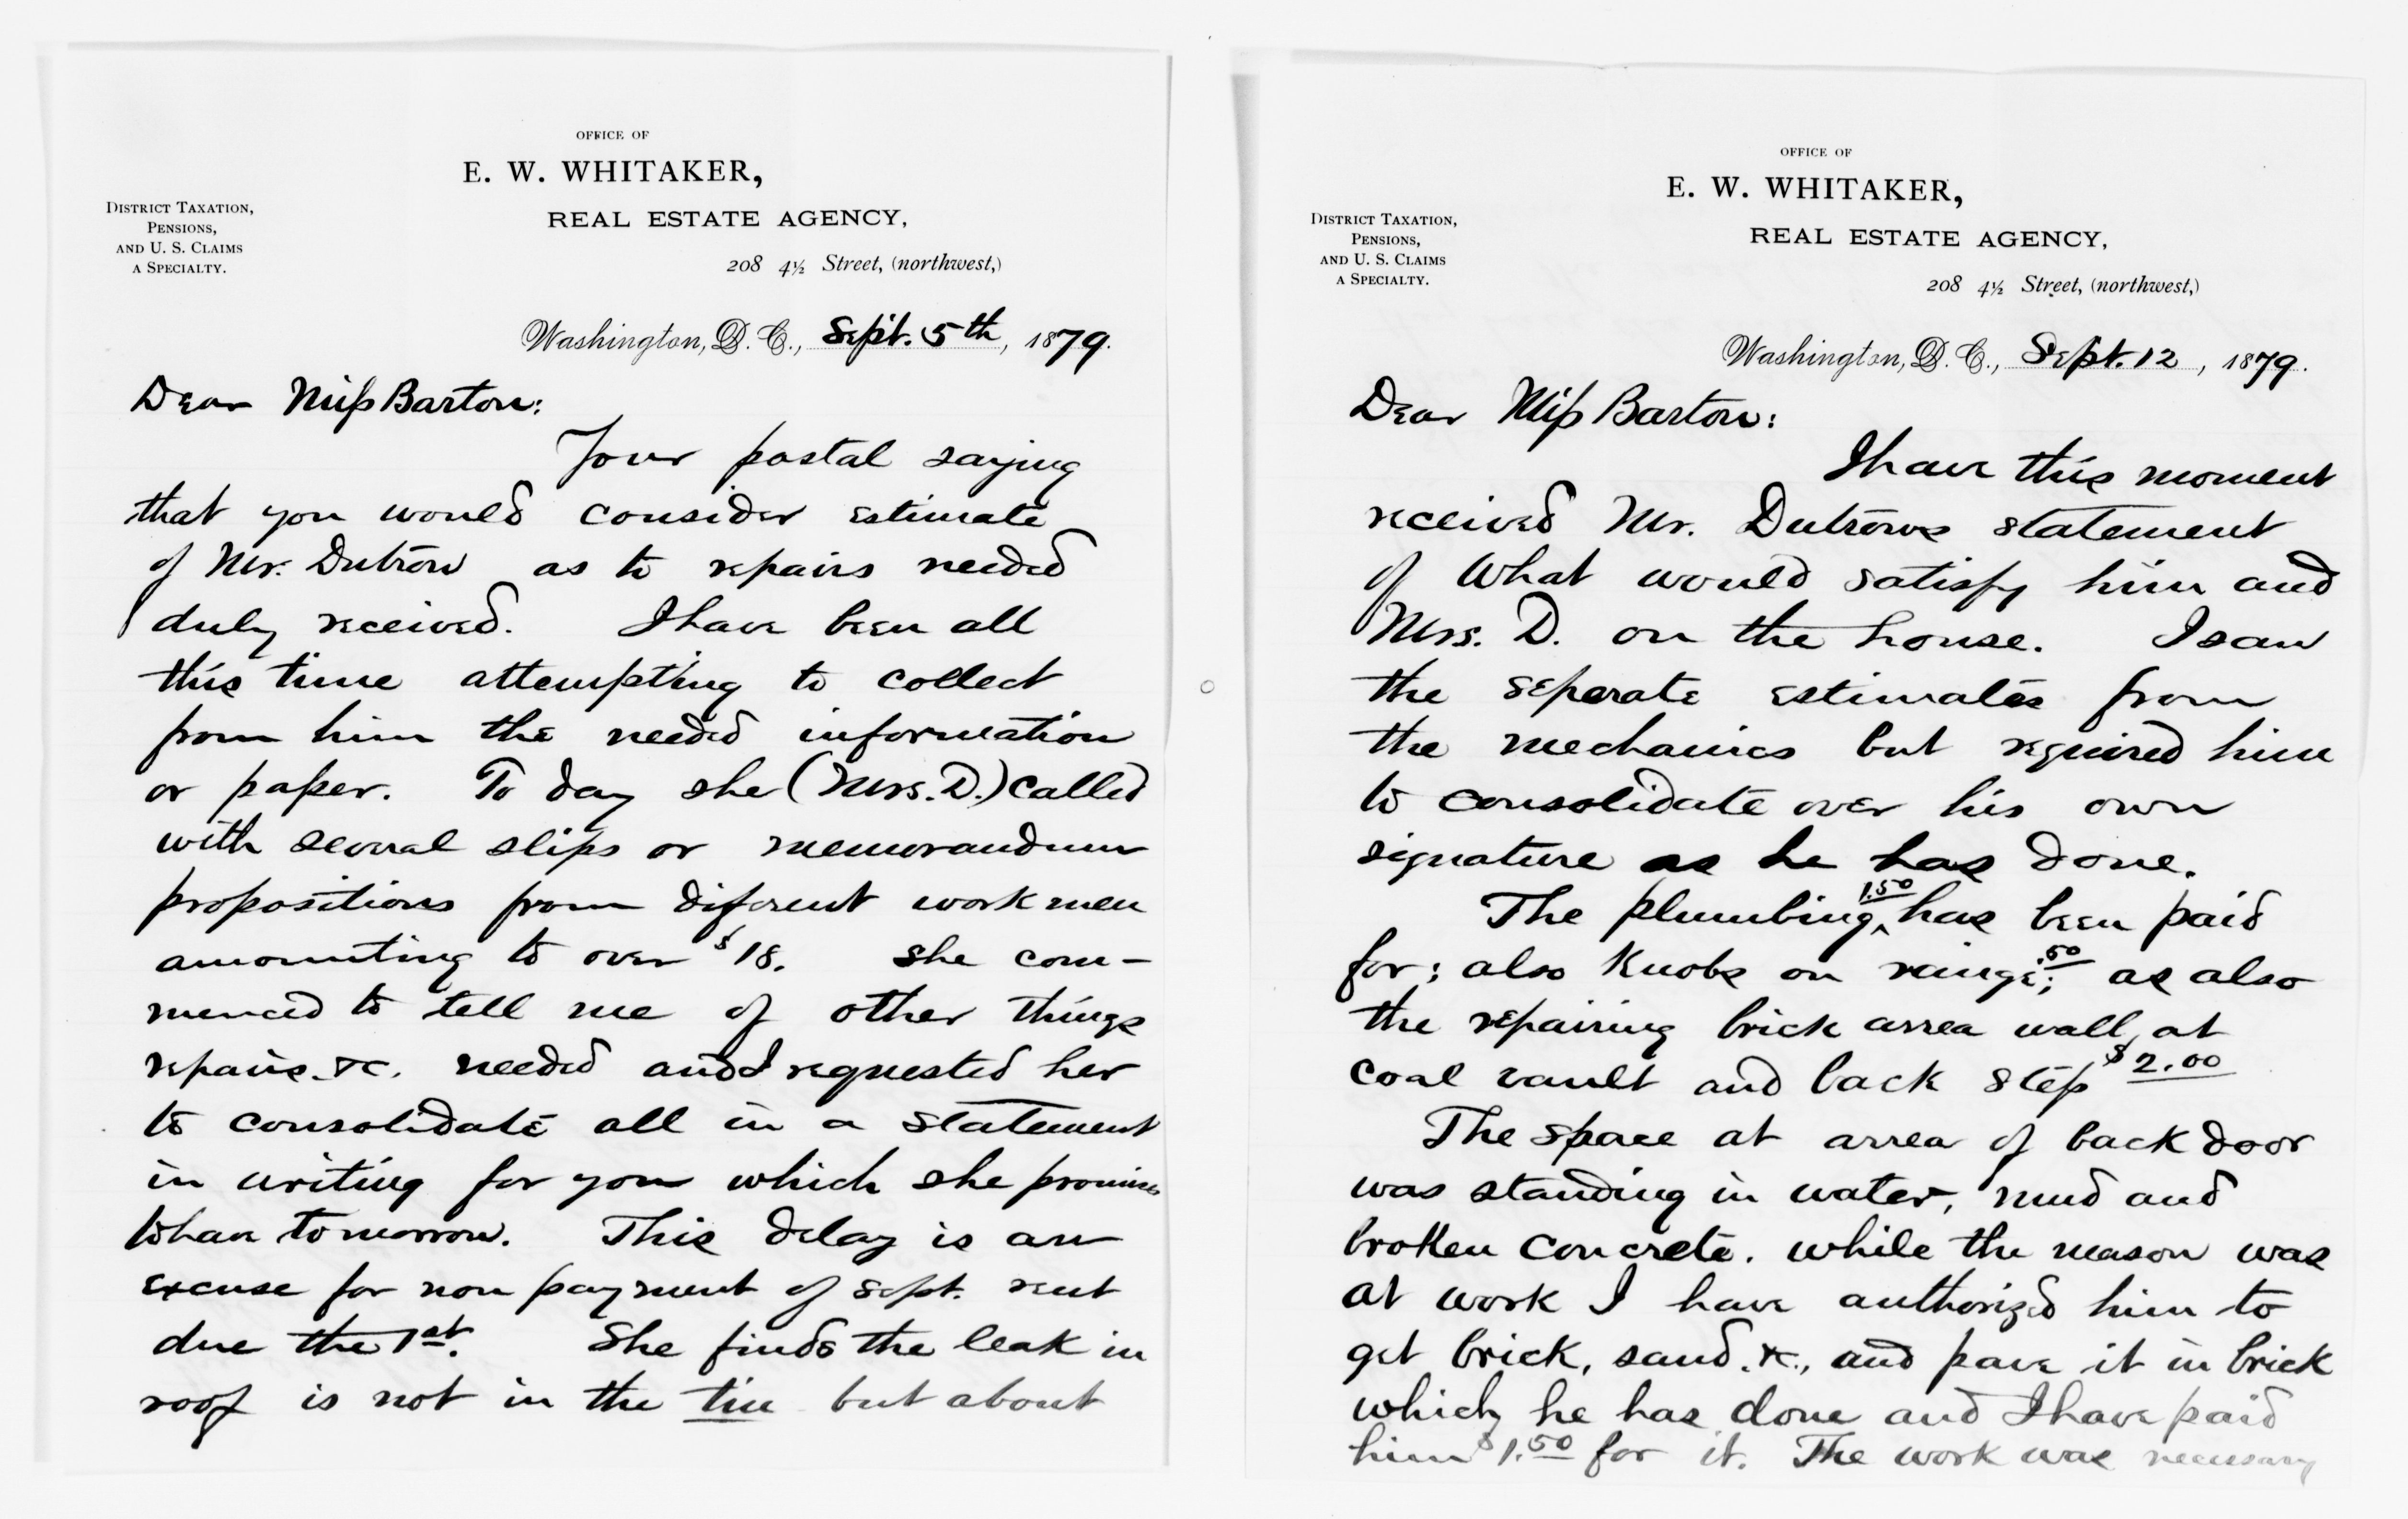 OFFICE OF
E. W. WHITAKER,
REAL ESTATE AGENCY,
208 4½ Street, (northwest,)
DISTRICT TAXATION,
PENSIONS,
AND U. S. CLAIMS
A SPECIALTY.
Washington, D. C., Sept. 5th, 1879.
Dear Miss Barton:
Your postal saying
that you would consider estimate
of Mr. Dutrow as to repairs needed
duly received. I have been all
this time attempting to collect
from him the needed information
or paper. To day she (Mrs. D.) called
with several slips or memorandum
propositions from diferent workmen
amounting to over $18. She com-
menced to tell me of other things
repairs &c. needed and I requested her
to consolidate all in a statement
in writing for you which she promises
to have tomorrow. This delay is an
excuse for non payment of Sept. rent
due the 1st. She finds the leak in
roof is not in the tin but about
OFFICE OF
E. W. WHITAKER,
REAL ESTATE AGENCY,
208 4½ Street, (northwest,)
DISTRICT TAXATION,
PENSIONS,
AND U. S. CLAIMS
A SPECIALTY.
Washington, D. C., Sept. 12, 1879.
Dear Miss Barton:
I have this moment
received Mr. Dutrows statement
of what would satisfy him and
Mrs. D. on the house. I saw
the seperate estimates from
the mechanics but required him
to consolidate over his own
signature as he has done.
The plumbing, 1.50 has been paid
for; also Knobs on range .50; as also
the repairing brick arrea wall, at
coal vault and back step $2.00
The space at arrea of back door
was standing in water, mud and
broken concrete. while the mason was
at work I have authorized him to
get brick, sand. &c., and pave it in brick
which he has done and I have paid
him $1.50 for it. The work was necessary